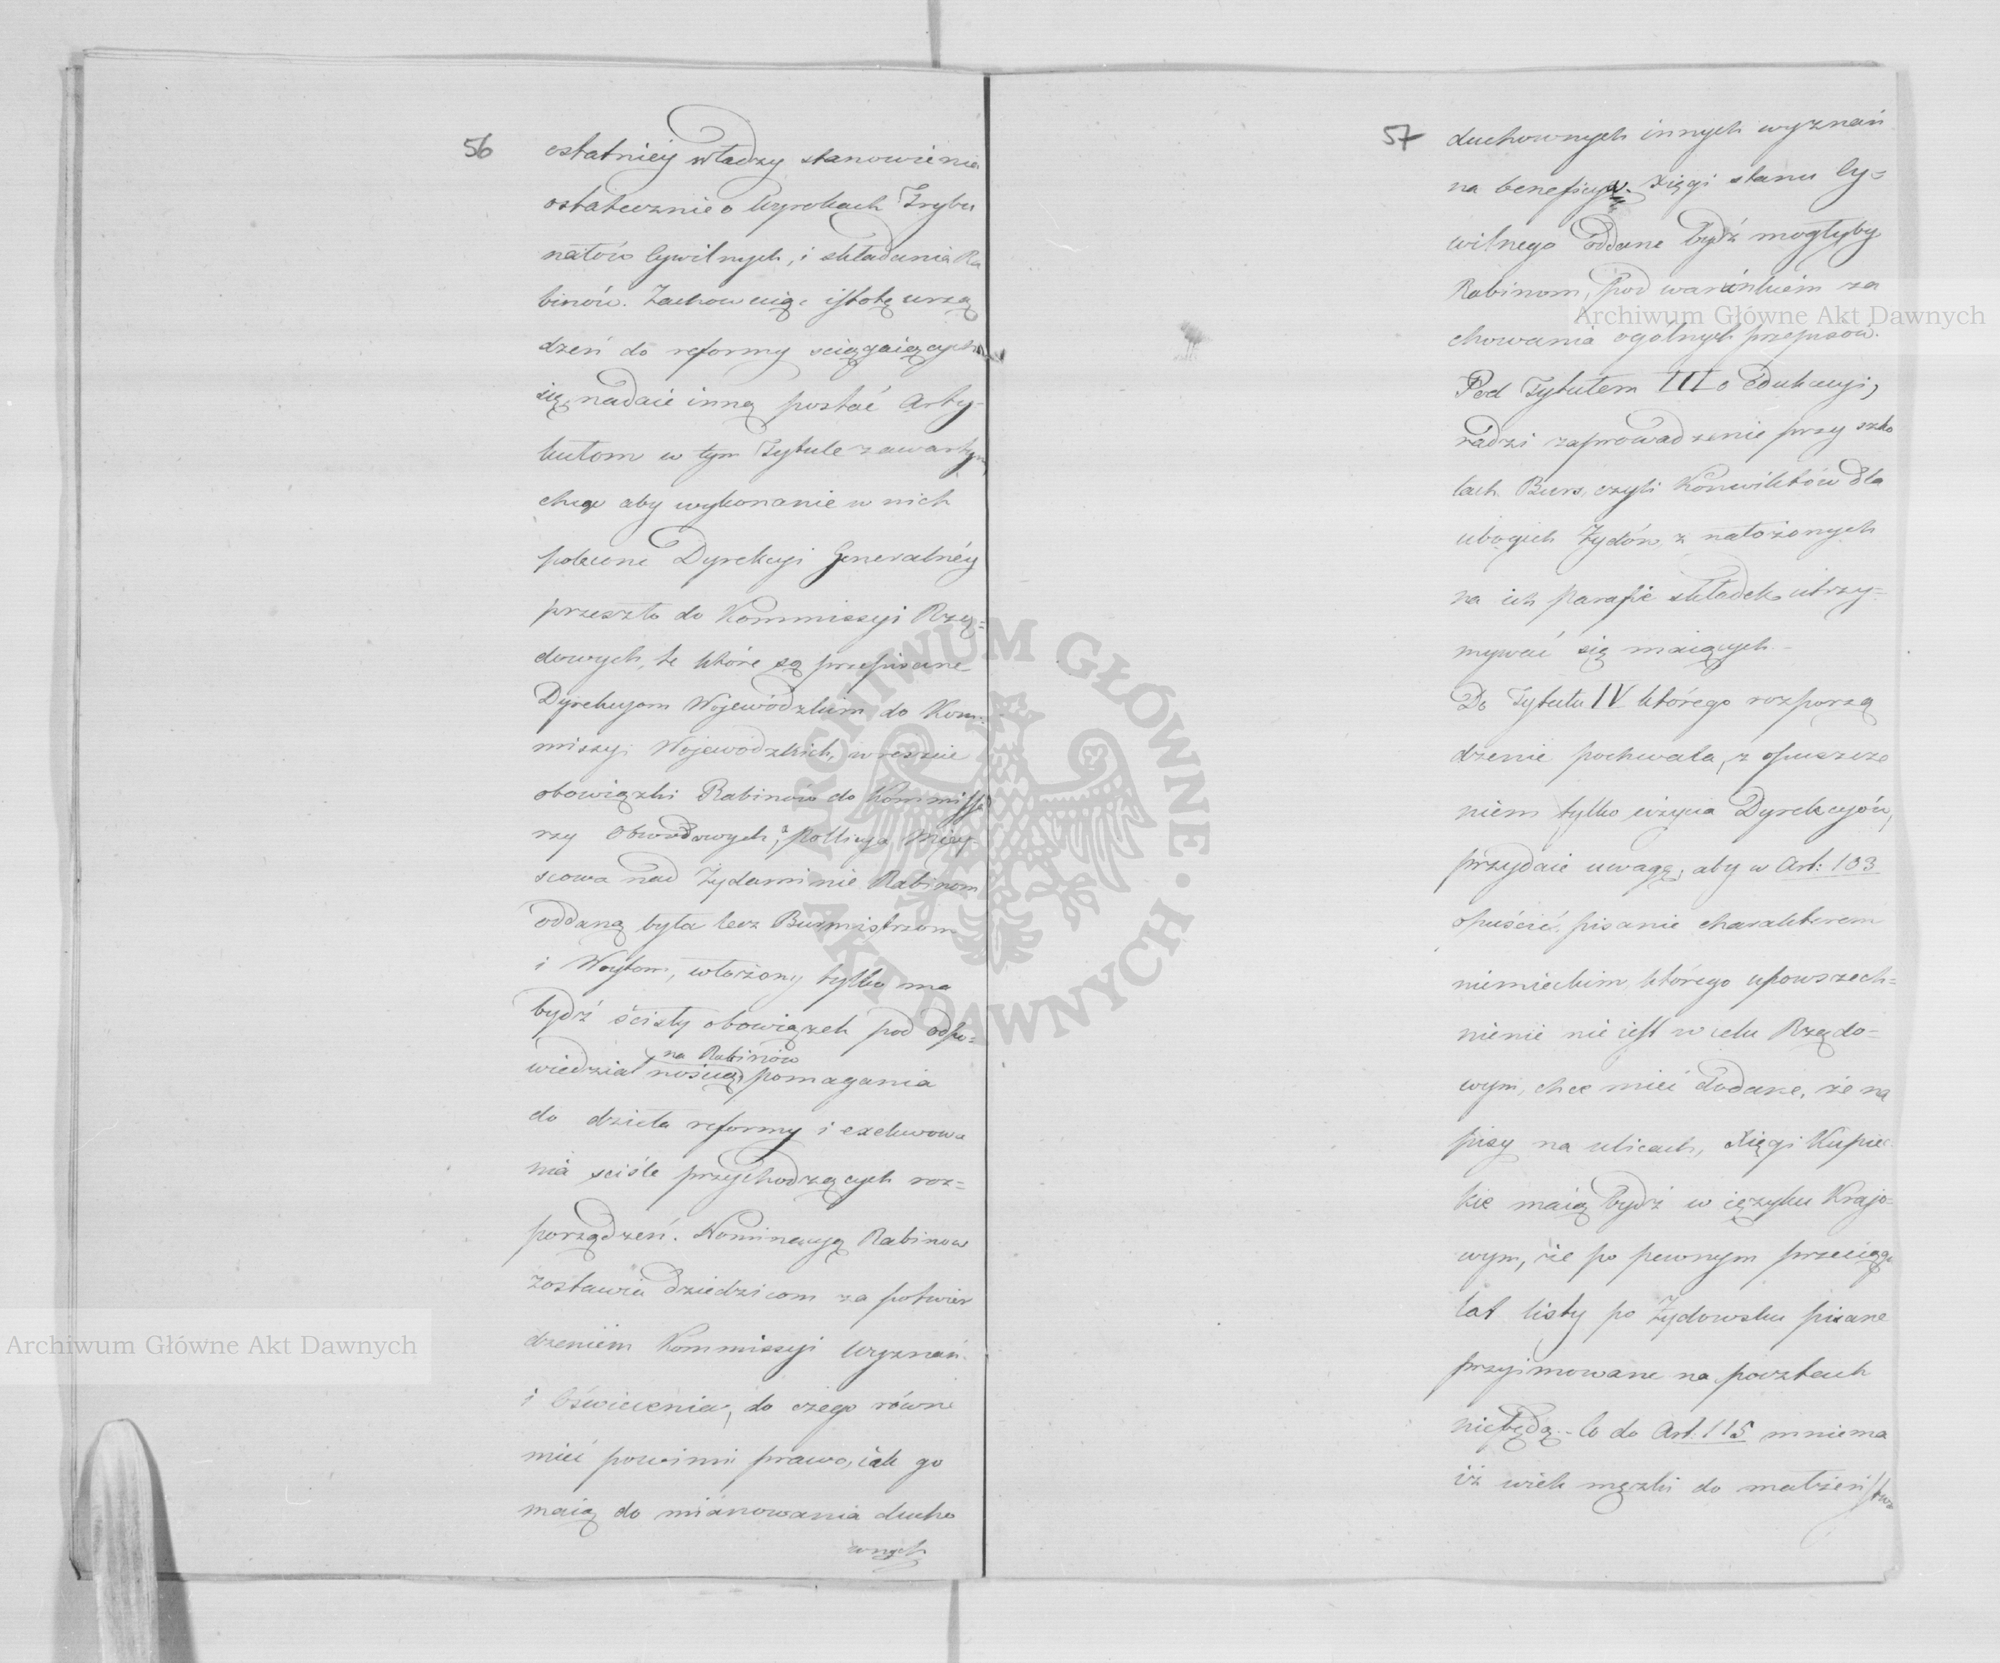 56
ostatniey władzy stanowienia
ostatecznie o Wyrokach Trybu
nałów Cywilnych, i składania Ra
binów. Zachowuiąc istotę urzą
dzeń do reformy sciągaiących
się, nadaie inną postać Arty-
kułom w tym Tytule zawartym
chce aby wykonanie w nich
polecone Dyrekcyi Generalnéy
przeszło do Kommissyi Rzą=
dowych, te które są przepisane
Dyrekcyom Wojewódzkim do Kom
missyi Wojewódzkich, wreszcie
obowiązki Rabinów do Kommissa
rzy Obwodowych, Pollicya Miey
scowa nad Żydami nie Rabinom
oddaną była lecz Burmistrzom
i Woytom, włożony tylko ma
bydź ścisły obowiązek pod odpo=
na Rabinów
wiedzialnością pomagania
do dzieła reformy i exekwowa
nia ściśle przychodzących roz=
porządzeń. Nominacyą Rabinow
zostawia dziedzicom za potwier
dzeniem Kommissyi Wyznań
i Oświecenia, do czego równe
mieć powinni prawo, iak go
maią do mianowania ducho
wnych
57
duchownych innych wyznań
na beneficya. Xięgi stanu Cy=
wilnego oddane bydź mogłyby
Rabinom, pod warunkiem za
chowania ogólnych przepisów.
Pod Tytułem III o Edukacyi,
radzi zaprowadzenie przy szko
łach Burs, czyli Konwiktów dla
ubogich Żydów, z nałożonych
na ich parafie składek utrzy=
mywać się maiących.
Do Tytułu IV którego rozporzą
dzenie pochwala, z opuszcze
niem tylko użycia Dyrekcyów,
przydaie uwagę, aby w Art: 103
opuścić pisanie charakterem
niemieckim, którego upowszech=
nienie nie iest w celu Rządo=
wym, chce mieć dodane, że na
pisy na ulicach, Xięgi Kupiec
kie maią bydź w ięzyku Krajo=
wym, że po pewnym przeciągu
lat listy po Żydowsku pisane
przyimowane na pocztach
niebędą. Co do Art. 115 mniema
iż wiek męzki do małżeństwa
Archiwum Główne Akt Dawnych
Archiwum Główne Akt Dawnych
ARCHIWUM GŁÓWNE · AKT DAWNYCH ·